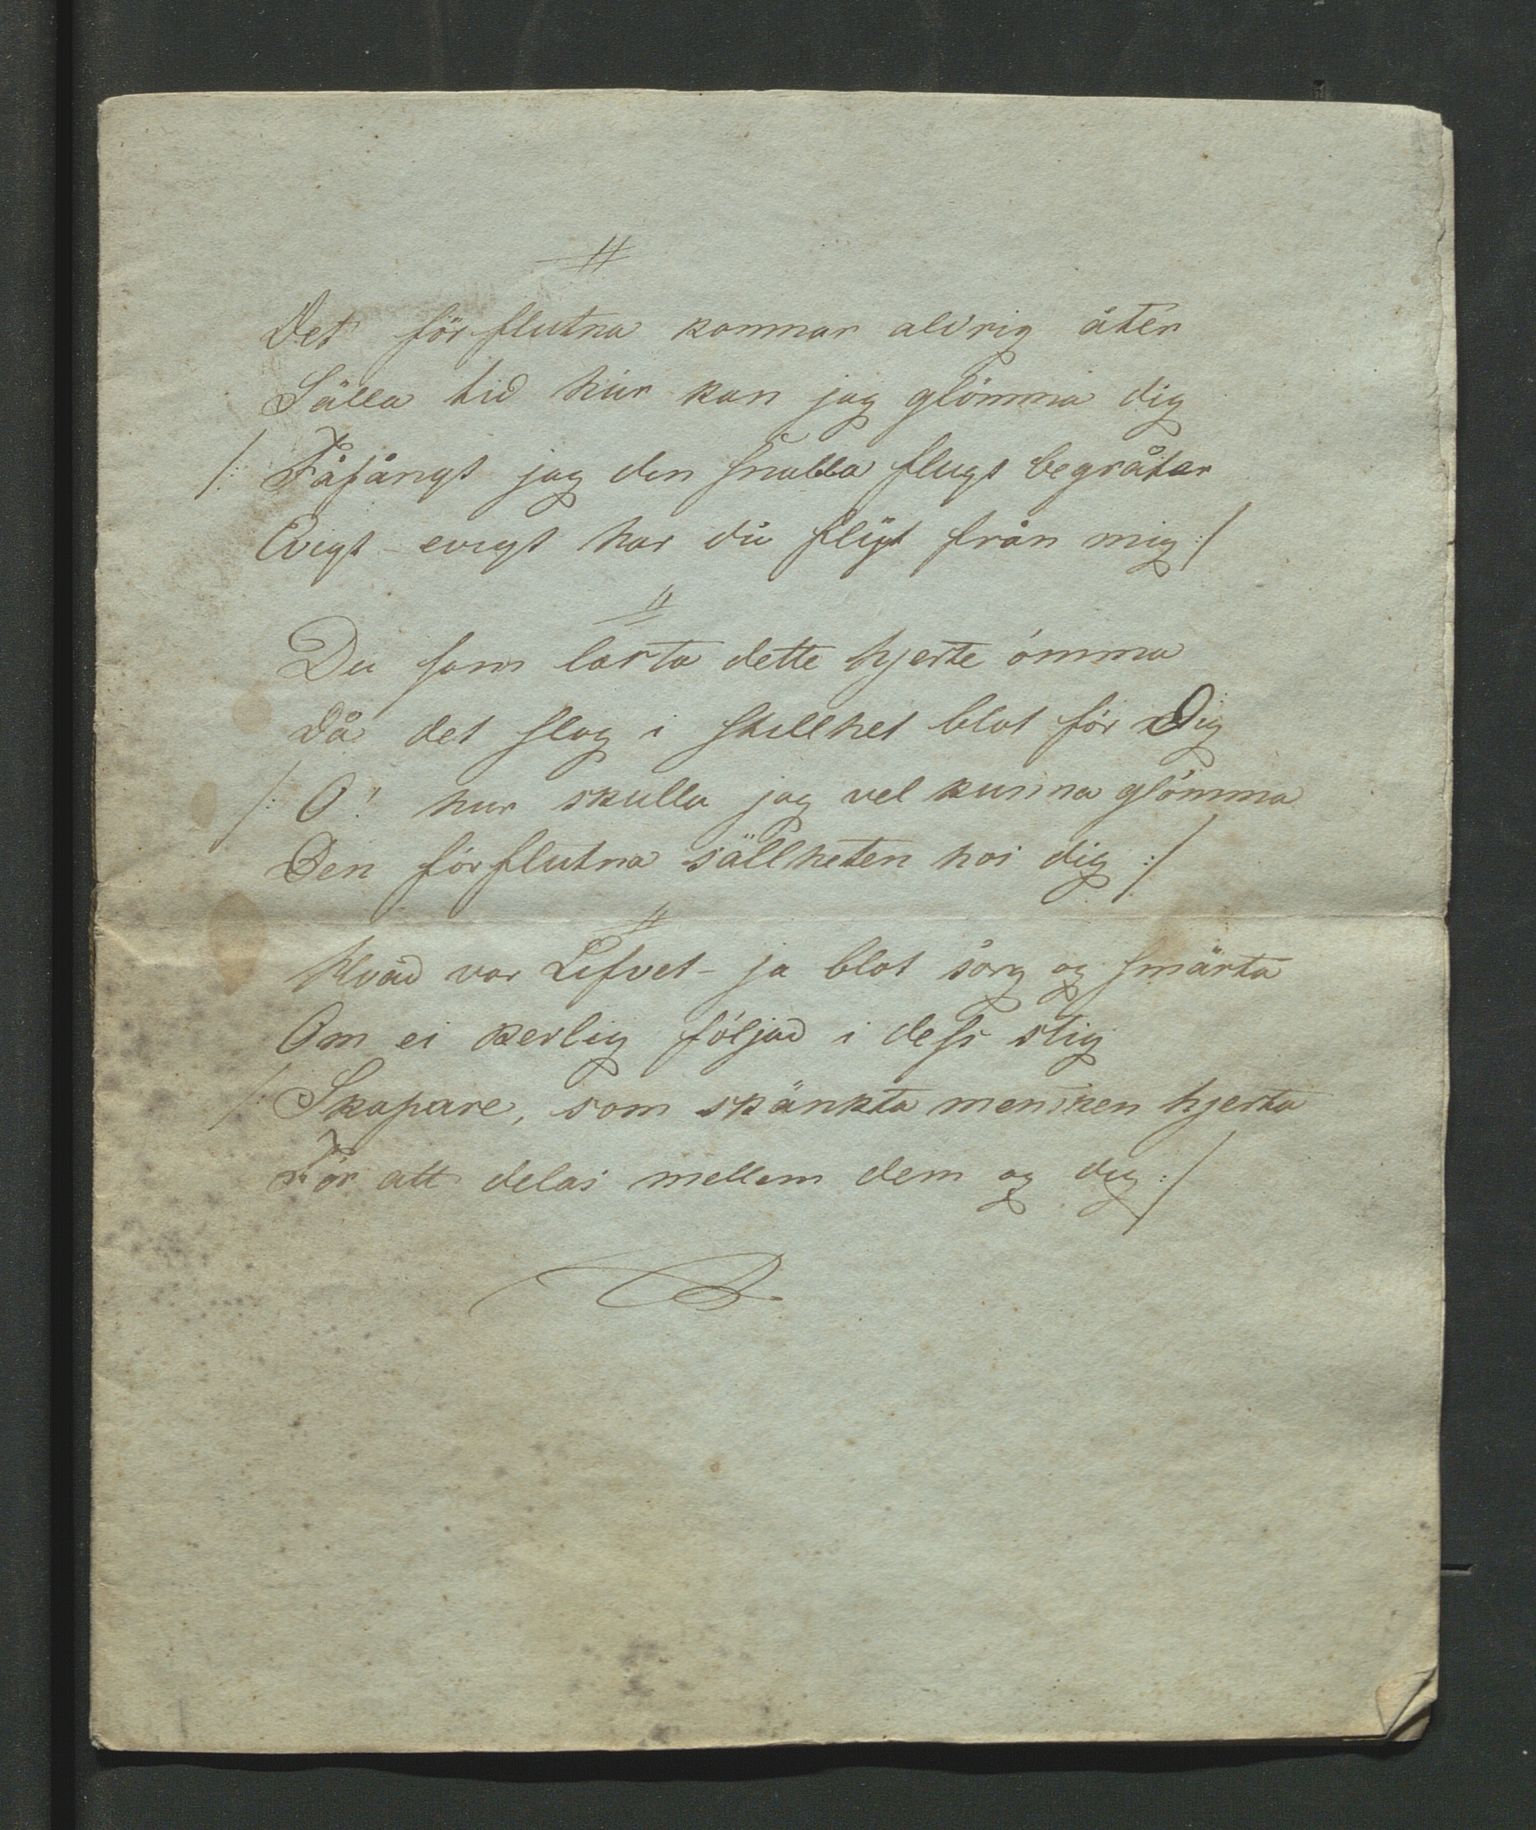 Det förflutna kommar aldrig åter
Sälla tid hur kan jag glömma dig
/: Fåfångt jag den snabba flygt begråter
Evigt – evigt har du flÿt från mig :/
Du som lärta dette hjerte ömma
Då det slog i stillhet blot för Dig
/: O! hur skulla jag vel kunna glömma
Den förflutna sällheten hos dig :/
Hvad var Lifvet – ja blot sorg og smärta
Om ei kerlig följad i dess stig
/: Skapare, som skänkta mensken hjerta
För att delas mellem dem og dig :/